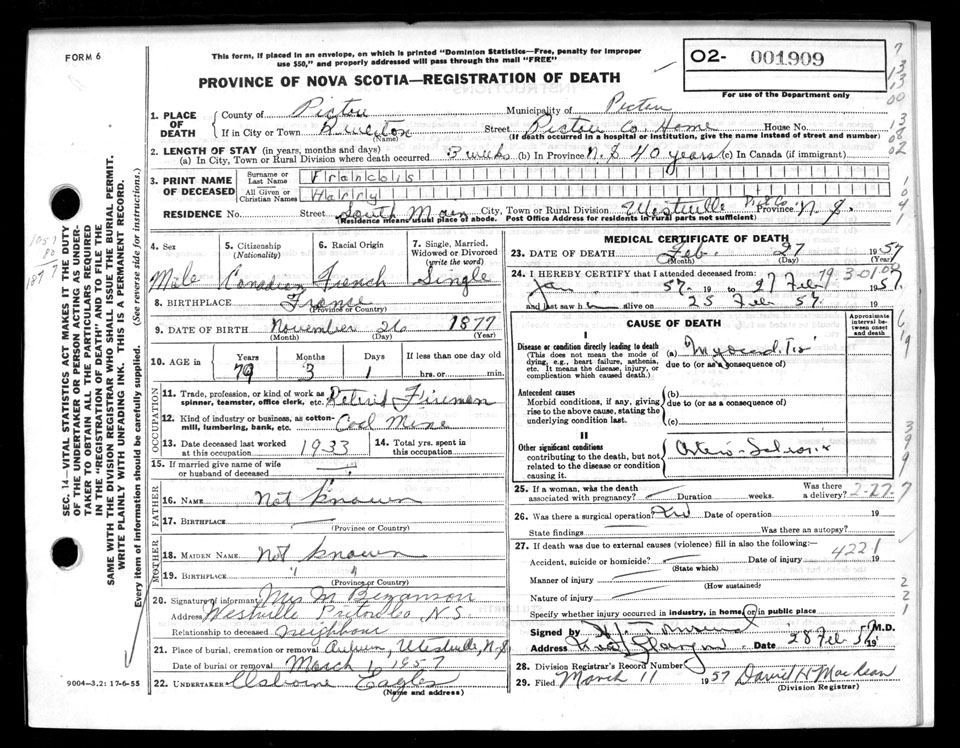 FORM 6
This form, if placed in an envelope, on which is printed "Dominion Statistics—Free, penalty for improper
use $50," and properly addressed will pass through the mail "FREE"
PROVINCE OF NOVA SCOTIA—REGISTRATION OF DEATH
02- 001909
For use of the Department only
1. PLACE OF DEATH
County of Pictou Municipality of Pictou
If in City or Town Riverton Street Pictou Co. Home House No.
(Name) (If death occurred in a hospital or institution, give the name instead of street and number)
2. LENGTH OF STAY (in years, months and days)
(a) In City, Town or Rural Division where death occurred 3 weeks (b) In Province N.S 40 years (c) In Canada (if immigrant)
3. PRINT NAME OF DECEASED
Surname or Last Name Francois
All Given or Christian Names Harry
RESIDENCE No. Street South Main City, Town or Rural Division Westville Pict Co. Province N.S.
Residence means usual place of abode. Post Office Address for residents in rural parts not sufficient)
4. Sex Male
5. Citizenship (Nationality) Canadian
6. Racial Origin French
7. Single, Married, Widowed or Divorced (write the word) Single
8. BIRTHPLACE France
(Province or Country)
9. DATE OF BIRTH November 26 1877
(Month) (Day) (Year)
10. AGE in Years 79 Months 3 Days 1 If less than one day old hrs. or min.
OCCUPATION
11. Trade, profession, or kind of work as spinner, teamster, office clerk, etc. Retired Fireman
12. Kind of industry or business, as cotton-mill, lumbering, bank, etc. Coal Mine
13. Date deceased last worked at this occupation 1933
14. Total yrs. spent in this occupation
15. If married give name of wife or husband of deceased
FATHER
16. NAME Not known
17. BIRTHPLACE
(Province or Country)
MOTHER
18. MAIDEN NAME Not known
19. BIRTHPLACE " "
(Province or Country)
20. Signature of informant Mrs M Bezanson
Address Westville Pictou Co, N.S.
Relationship to deceased neighbour
21. Place of burial, cremation or removal Auburn, Westville, N.S
Date of burial or removal March 1, 1957
22. UNDERTAKER Osborne Eagles
(Name and address)
9004-3.2: 17-6-55
MEDICAL CERTIFICATE OF DEATH
23. DATE OF DEATH Feb. 27 1957
(Month) (Day)
24. I HEREBY CERTIFY that I attended deceased from:
Jan 57 19 to 27 Feb 1957
and last saw h alive on 25 Feb 57. 19
CAUSE OF DEATH
Approximate interval between onset and death
I
Disease or condition directly leading to death
(This does not mean the mode of dying, e.g., heart failure, asthenia, etc. It means the disease, injury, or complication which caused death.)
(a) Myocarditis
due to (or as a consequence of)
Antecedent causes
Morbid conditions, if any, giving rise to the above cause, stating the underlying condition last.
(b)
due to (or as a consequence of)
(c)
II
Other significant conditions
contributing to the death, but not related to the disease or condition causing it.
Arterio-Sclerosis
25. If a woman, was the death associated with pregnancy? Duration weeks. Was there a delivery?
2-27-7
26. Was there a surgical operation? No Date of operation 19
State findings Was there an autopsy?
27. If death was due to external causes (violence) fill in also the following:—
4221
Accident, suicide or homicide? Date of injury 19
(State which)
Manner of injury
(How sustained)
Nature of injury
Specify whether injury occurred in industry, in home, or in public place
Signed by M.D.
Address New Glasgow Date 28 Feb 57 19
28. Division Registrar's Record Number
29. Filed March 11 1957 David H MacLean
(Division Registrar)
SEC. 14—VITAL STATISTICS ACT MAKES IT THE DUTY
OF THE UNDERTAKER OR PERSON ACTING AS UNDER-
TAKER TO OBTAIN ALL THE PARTICULARS REQUIRED
IN THE "REGISTRATION OF DEATH" AND TO FILE THE
SAME WITH THE DIVISION REGISTRAR WHO SHALL ISSUE THE BURIAL PERMIT.
WRITE PLAINLY WITH UNFADING INK. THIS IS A PERMANENT RECORD.
Every item of information should be carefully supplied. (See reverse side for instructions.)
1957
80
1877